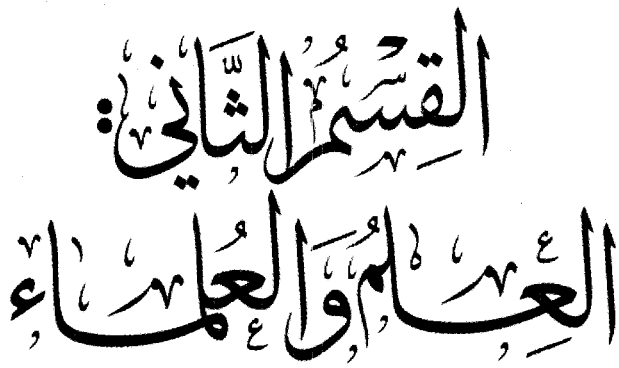 القِسْمُ الثَّانِي:
العِلْمُ وَالعُلَمَاء